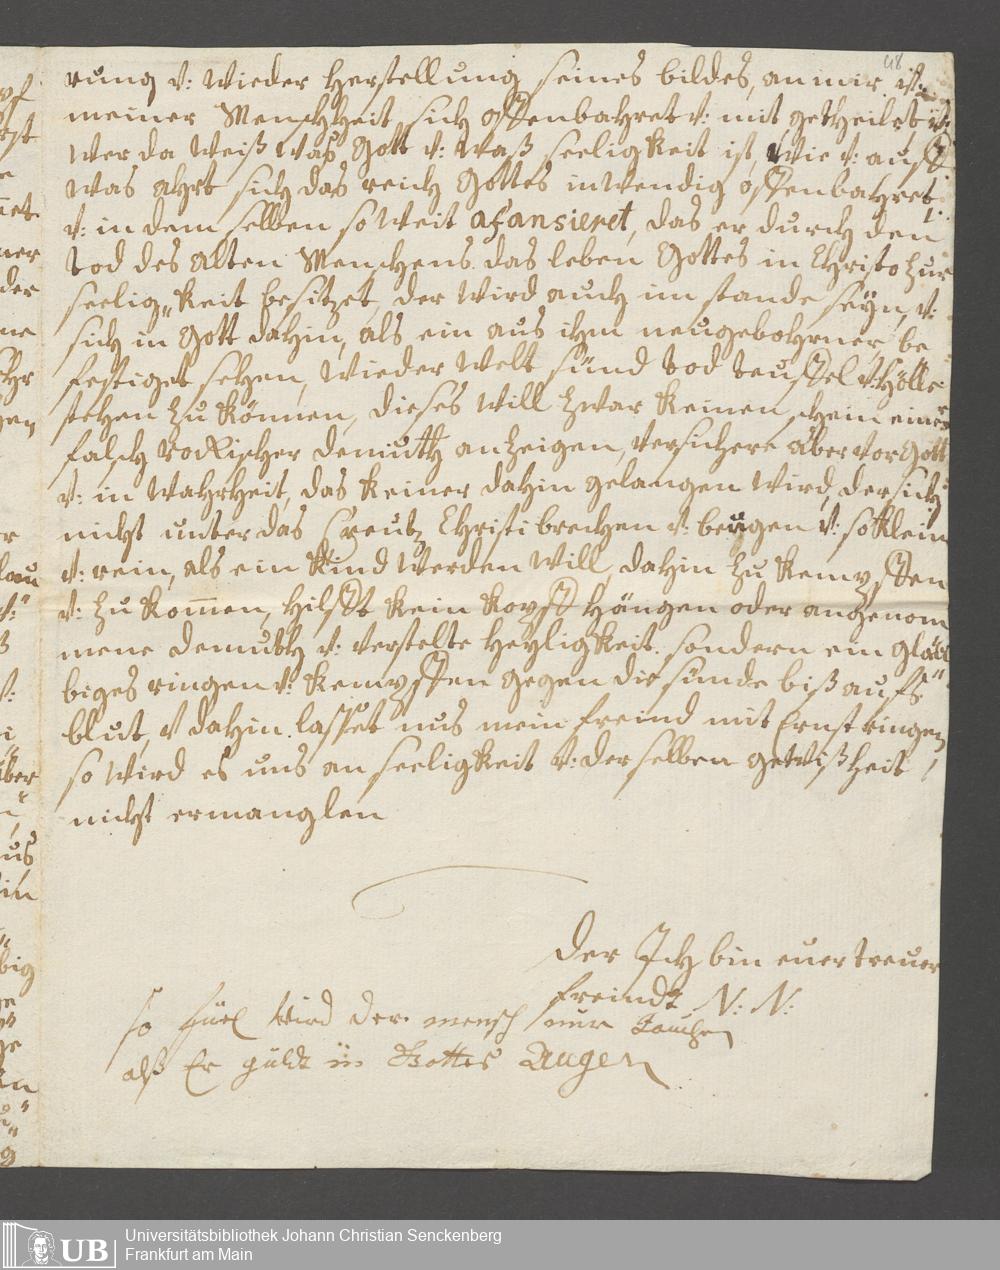 48
rung v: wieder herstellung seines bildes, an mir v:
meiner Menschheit sich offenbahret v: mit getheilet
wer da weiß was Gott v: waß seeligkeit ist, wie v: auff
was ahrt sich das reich Gottes inwendig offenbahret
v: in dem selben so weit afansieret, das er durch den
tod des alten Menschens das leben Gottes in Christo zur
seelig„keit besitzet, der wird auch im stande seyn, v:
sich in Gott dahin, als ein aus ihm neugebohrner, be
festiget sehen, wieder welt sünd tod teuffel v: Hölle
stehen zu können, dieses will zwar keinen schein einer
falsch anzeigen, versichere aber vor Gott
v: in wahrheit, das keiner dahin gelangen wird, der sich
nicht unter das Creutz Christi brechen v: beugen v: so klein
v: rein, als ein kind werden will, dahin zu kempffen
v: zu kom̄en, hilfft kein kopff hängen oder angenom
mene demuth v: verstelte heyligkeit. sondern ein gläu
biges ringen v: kempffen gegen die sünde biß aufs
blut, v dahin lasset uns mein freind mit Ernst ringen,
so wird es uns an seeligkeit v: derselben gewißheit
nicht ermanglen
Der Ich bin euer treuer
freindt N: N:
so füel wird der mensch nur tauchen
alß Er güldt in Gottes Augen
UB
Universitätsbibliothek Johann Christian Senckenberg
Frankfurt am Main